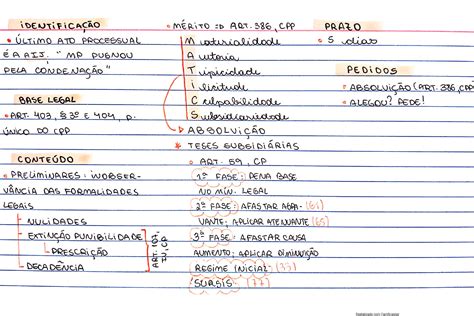 IDENTIFICAÇÃO
• ÚLTIMO ATO PROCESSUAL
É A AIJ, "MP PUGNOU
PELA CONDENAÇÃO"
BASE LEGAL
• ART. 403, § 3º E 404, P.
ÚNICO DO CPP
CONTEÚDO
• PRELIMINARES: INOBSER-
VÂNCIA DAS FORMALIDADES
LEGAIS
NULIDADES
EXTINÇÃO PUNIBILIDADE
PRESCRIÇÃO
DECADÊNCIA
ART. 107,
IV, CP
• MÉRITO => ART. 386, CPP
Materialidade
Autoria
Tipicidade
Ilicitude
Culpabilidade
Subsidiariedade
ABSOLVIÇÃO
* TESES SUBSIDIÁRIAS
• ART. 59, CP
1ª FASE: PENA BASE
NO MÍN. LEGAL
2ª FASE: AFASTAR AGRA- (61)
VANTE; APLICAR ATENUANTE (65)
3ª FASE: AFASTAR CAUSA
AUMENTO; APLICAR DIMINUIÇÃO
REGIME INICIAL (33)
SURSIS (77)
PRAZO
• 5 dias
PEDIDOS
• ABSOLVIÇÃO (ART. 386, CPP
• ALEGOU? PEDE!